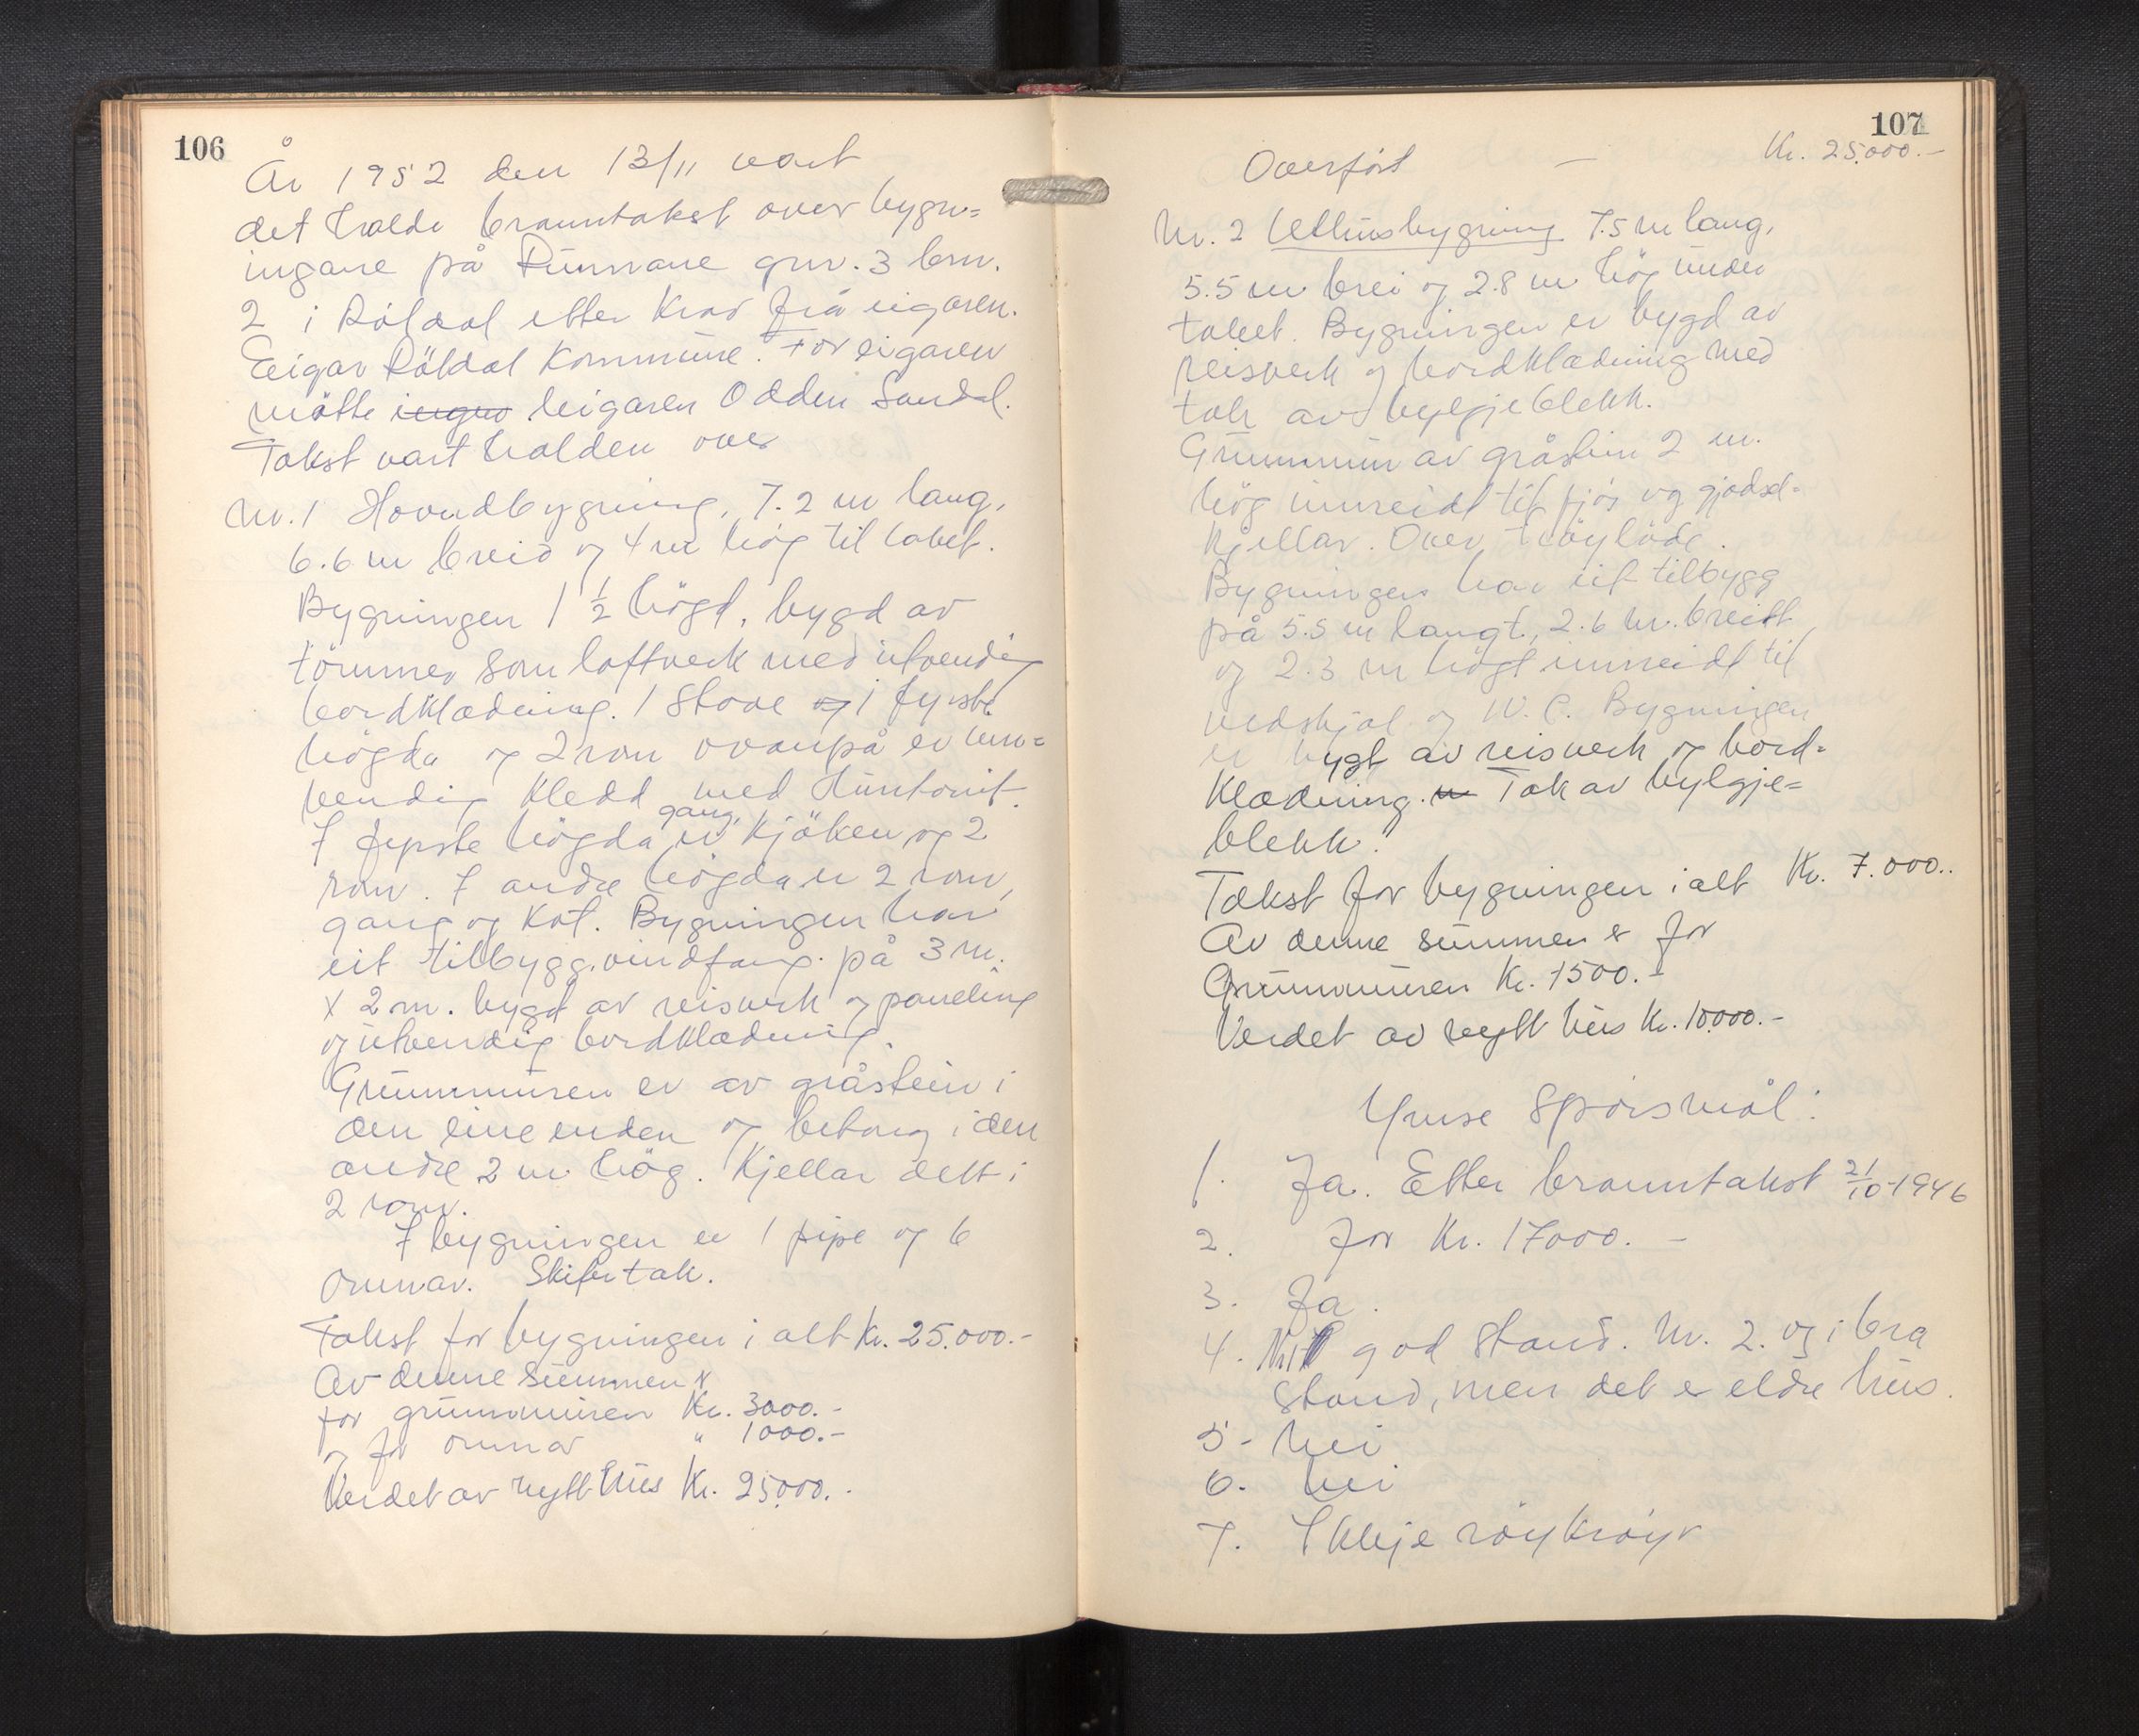 106
År 1952 den 13/11 vart
det halde branntakst over bygn=
ingane på Runnane gnr. 3 bnr.
2 i Röldal etter krav frå eigaren.
Eigar Röldal Kommune. For eigaren
møtte ingen leigaren Oddin Sandal.
Takst vart halden over
Nr. 1 Hovudbygning, 7.2 m lang,
6.6 m breid og 4 m høg til taket.
Bygningen 1 1/2 högd, bygd av
tömmer som loftverk med utvendig
bordklædning. 1 Stove og i fyrste
högda og 2 rom ovanpå er inn=
vendig kledd med Huntonit.
I fyrste högda er gang, kjöken og 2
rom. I andre högda er 2 rom,
gang og kot. Bygningen har
eit tilbygg, vindfang på 3 m.
x 2 m. bygd av reisverk og paneling
og utvendig bordklædning.
Grunnmuren er av gråstein i
den eine enden og betong i den
andre 2 m høg. Kjellar delt i
2 rom.
I bygningen er 1 pipe og 6
omnar. Skifertak.
Takst for bygningen i alt kr. 25.000.-
Av denne summen er
for grunnmuren Kr. 3000.-
og for omnar " 1000.-
Verdet av nytt hus Kr. 25000.-
107
Overført — Kr. 25.000.-
Nr. 2 Uthusbygning 7.5 m lang,
5.5 m brei og 2.8 m høg under
taket. Bygningen er bygd av
reisverk og bordklædning med
tak av bylgjeblekk.
Grunnmur av gråstein 2 m.
høg innreidt til fjös og gjødsel-
kjellar. Over höylöde.
Bygningen har eit tilbygg
på 5.5 m langt, 2.6 m. breitt
og 2.3 m högt innreidt til
vedskjol og W.C. Bygningen
er bygt av reisverk og bord-
klædning. Tak av bylgje=
blekk.
Takst for bygningen i alt Kr. 7.000..
Av denne summen er for
Grunnmuren Kr. 1500.-
Verdet av nytt hus Kr. 10.000.-
Ymse Spørsmål:
1. Ja. Etter branntakst 21/10-1946
2. for Kr. 17000.-
3. Ja.
4. Nr 1 god stand. Nr. 2. og i bra
stand, men det er eldre hus.
5- Nei
6. Nei
7. Ikkje röykröyr